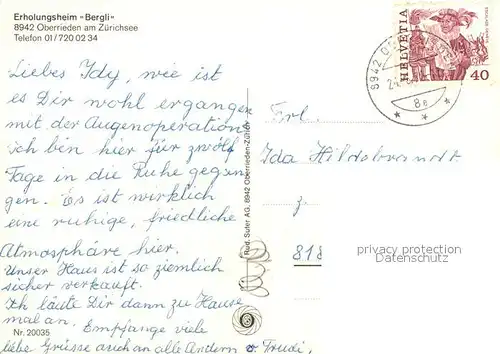 Erholungsheim «Bergli»
8942 Oberrieden am Zürichsee
Telefon 01/720 02 34
HELVETIA
40
8942 O
8e
Liebes Idy, wie ist
es Dir wohl ergangen
mit der Augenoperation
Ich bin hier für zwölf
Tage in die Ruhe gegan
gen. Es ist wirklich
eine ruhige, friedliche
Atmosphäre hier.
Unser Haus ist so ziemlich
sicher verkauft.
Ich läute Dir dann zu Hause
mal an. Empfange viele
liebe Grüsse auch an alle Andern v. Trudi,
Nr. 20035
Rud. Suter AG, 8942 Oberrieden-Zürich
Frl.
Ida Hildebrandt
z.
818
privacy protection
Datenschutz